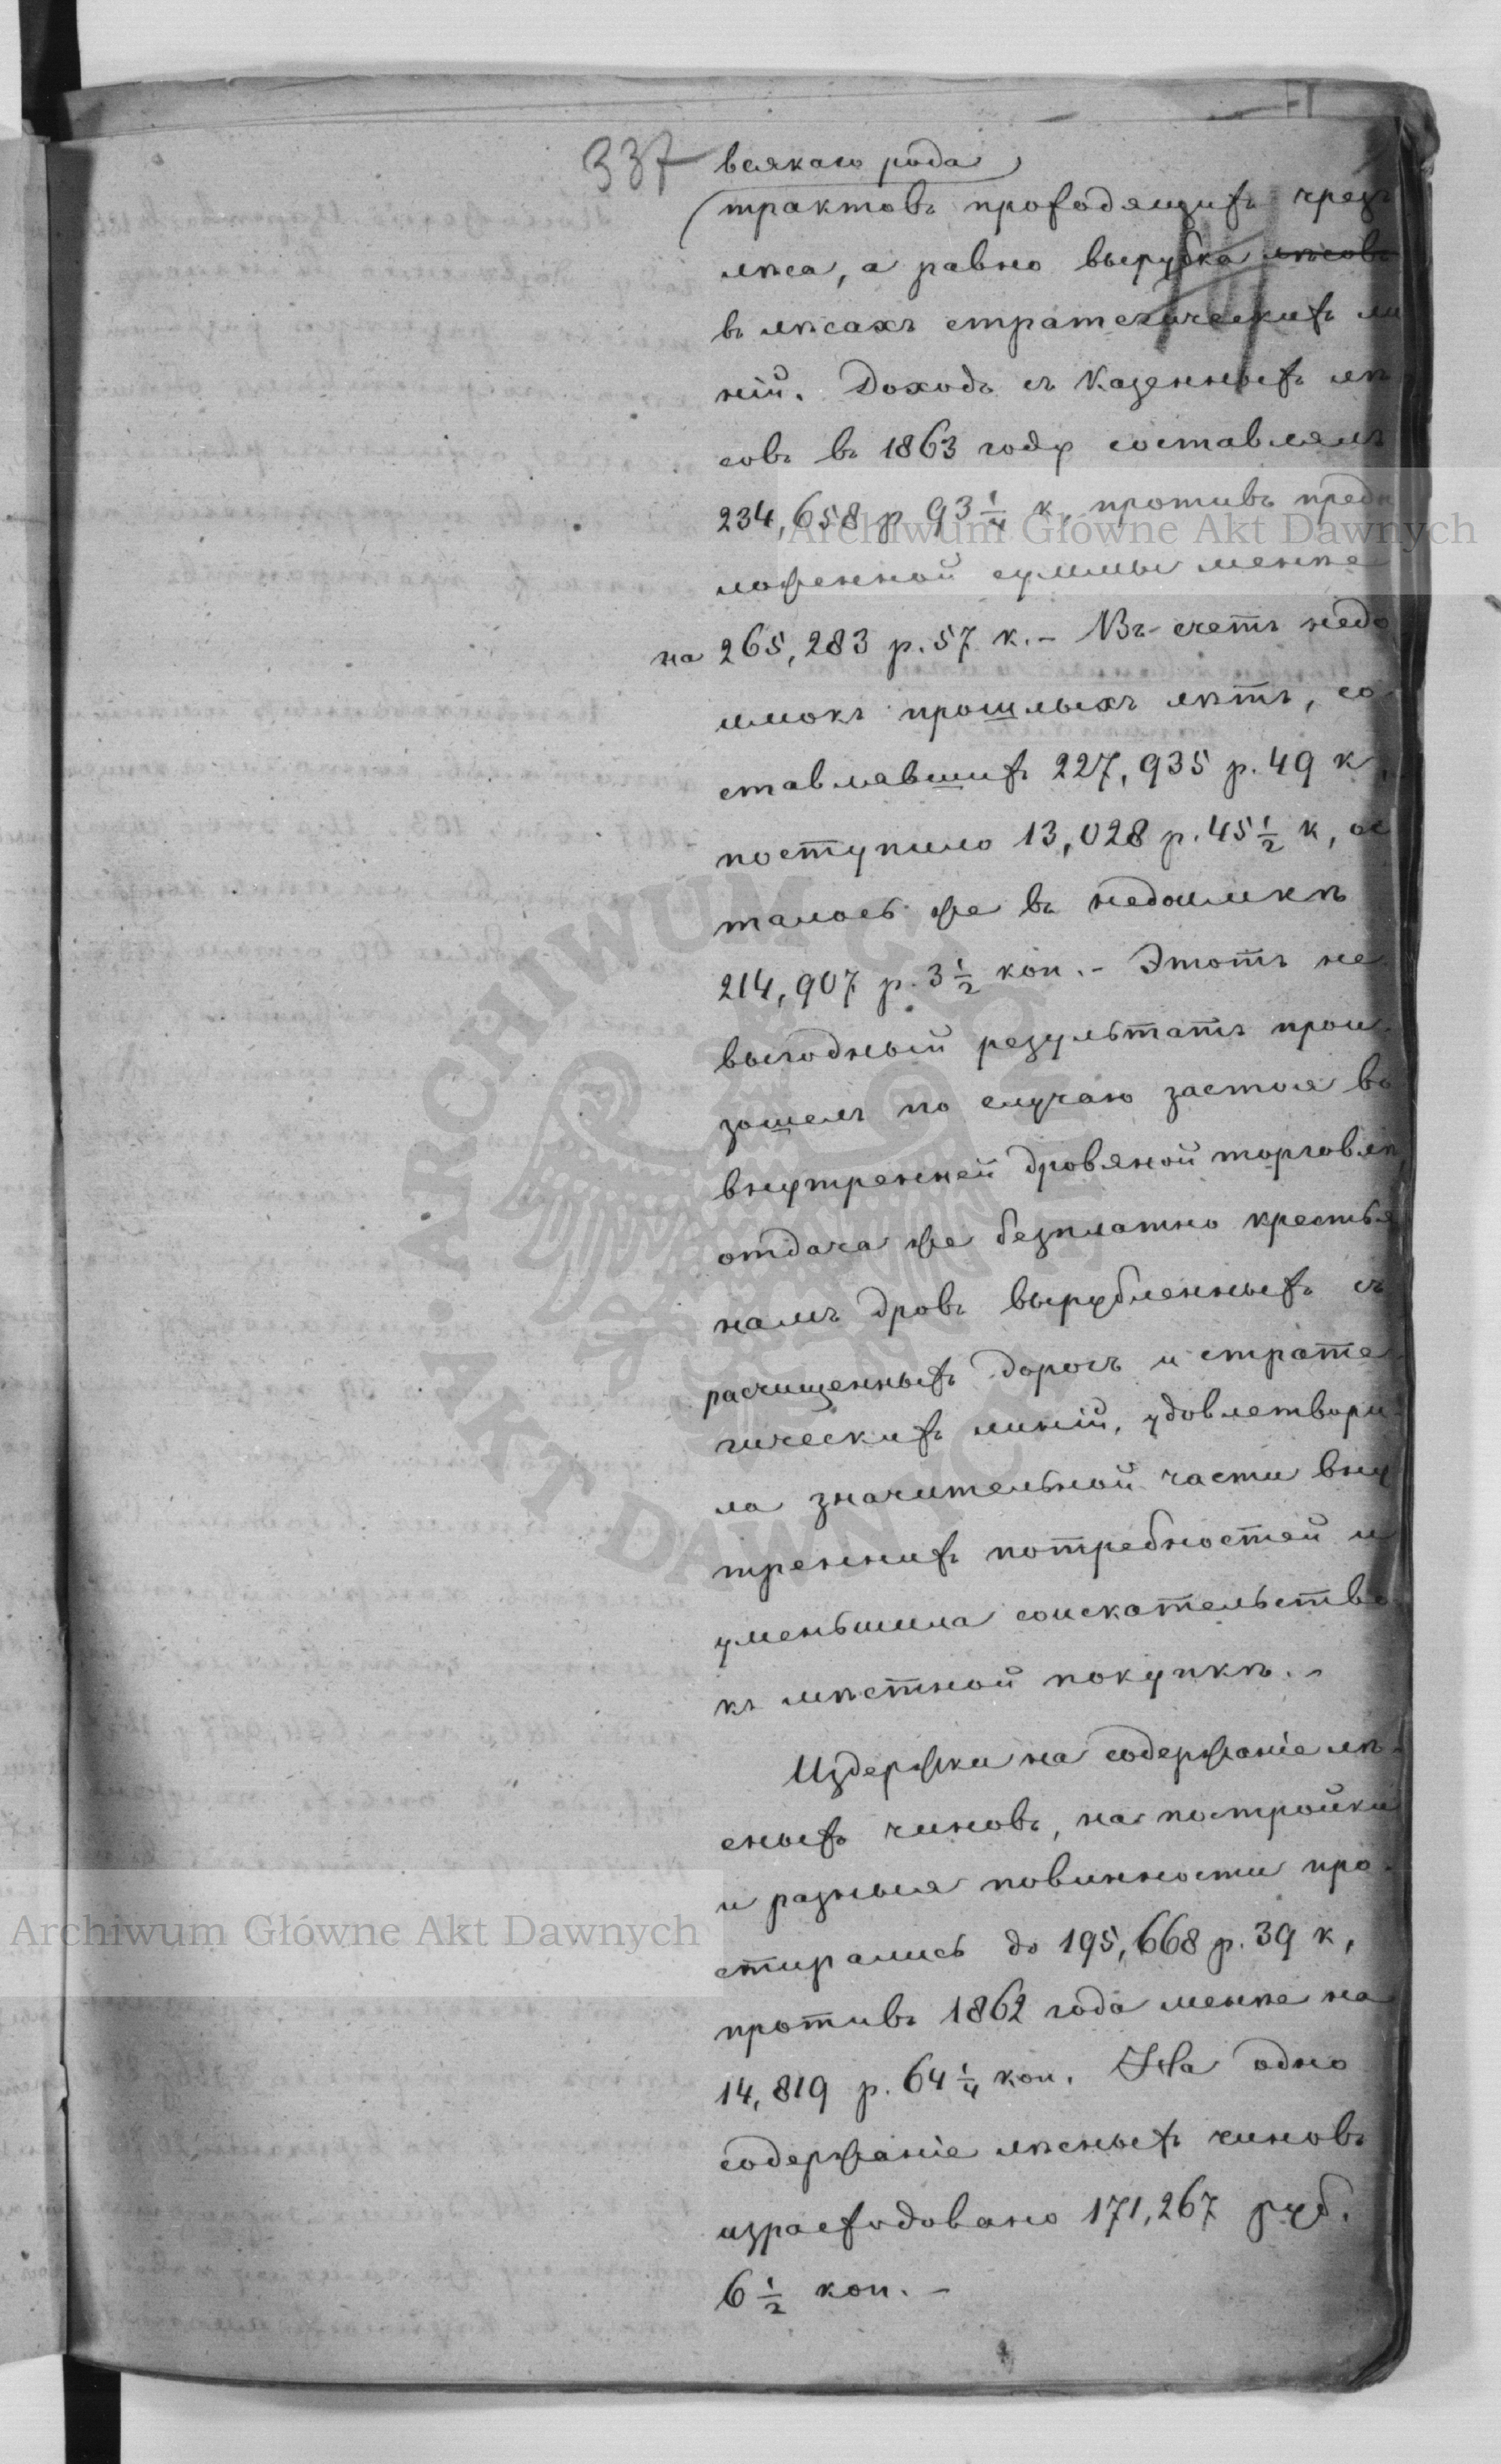 337 всякаго рода
трактовъ проходящихъ чрезъ
лѣса, а равно вырубка лѣсовъ
въ лѣсахъ стратегическихъ ли
ній. Доходъ съ Казенныхъ лѣ
совъ въ 1863 году составлялъ
234,658 р 93 1/4 к, противъ предп
Archiwum Główne Akt Dawnych
ложенной суммы менѣе
на 265,283 р. 57 к. - Въ счетъ недо
имокъ прошлыхъ лѣтъ, со
ставлявшихъ 227,935 р. 49 к,
поступило 13,028 р. 45 1/2 к, ос
талось же въ недоимкѣ
214,907 р. 3 1/2 коп. - Этотъ не
выгодный результатъ прои
зошелъ по случаю застоя во
внутренней дровяной торговлѣ,
отдача же безплатно крестья
намъ дровъ вырубленныхъ съ
расчищенныхъ дорогъ и страте
гическихъ линій, удовлетвори
ла значительной части вну
треннихъ потребностей и
уменьшила соискательство
къ мѣстной покупкѣ. -
Издержки на содержаніе лѣ
сныхъ чиновъ, на постройки
и разныя повинности про
Archiwum Główne Akt Dawnych
стирались до 195,668 р. 39 к,
противъ 1862 года менѣе на
14,819 р. 64 1/4 коп. На одно
содержаніе лѣсныхъ чиновъ
израсходовано 171,267 руб.
6 1/2 коп. -
ARCHIWUM GŁÓWNE AKT DAWNYCH